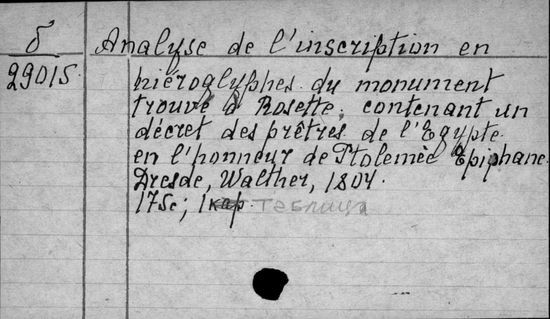 б Analyse de l'inscription en
29015 hiéroglyphes du monument
trouvé à Rosette, contenant un
décret des prêtres de l'Egypte
en l'honneur de Ptolemèe Epiphane.
Dresde, Walther, 1804.
175c; 1 кар. таблица